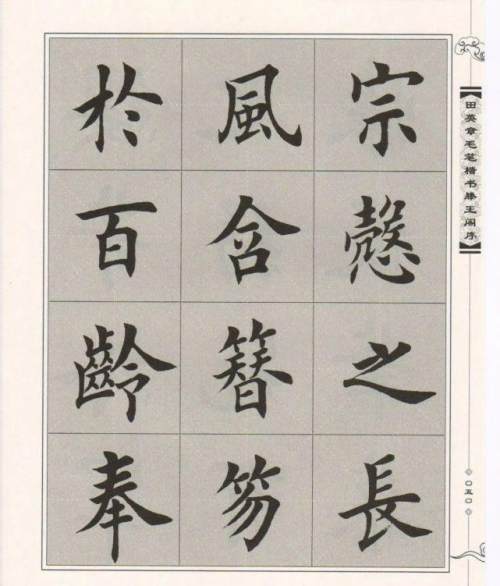 宗愨之長
風舍簪笏
於百齡奉
【田英章毛笔楷书滕王阁序】
◇〇五〇◇